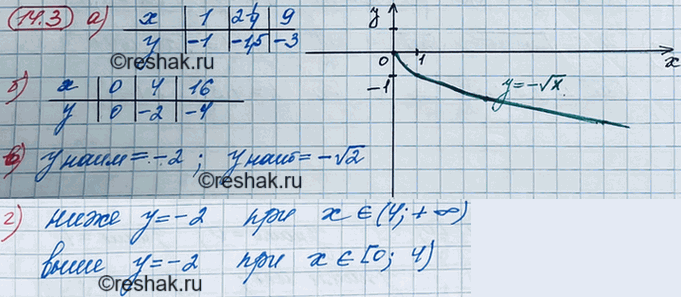 14.3 а) x 1 2,4 9
y -1 -1,5 -3
б) x 0 4 16
y 0 -2 -4
в) y наим = -2 ; y наиб = -√2
г) ниже y = -2 при x ∈ (4; +∞)
выше y = -2 при x ∈ [0; 4)
y
0 1 x
-1
y = -√x
©reshak.ru
©reshak.ru
©reshak.ru
©reshak.ru